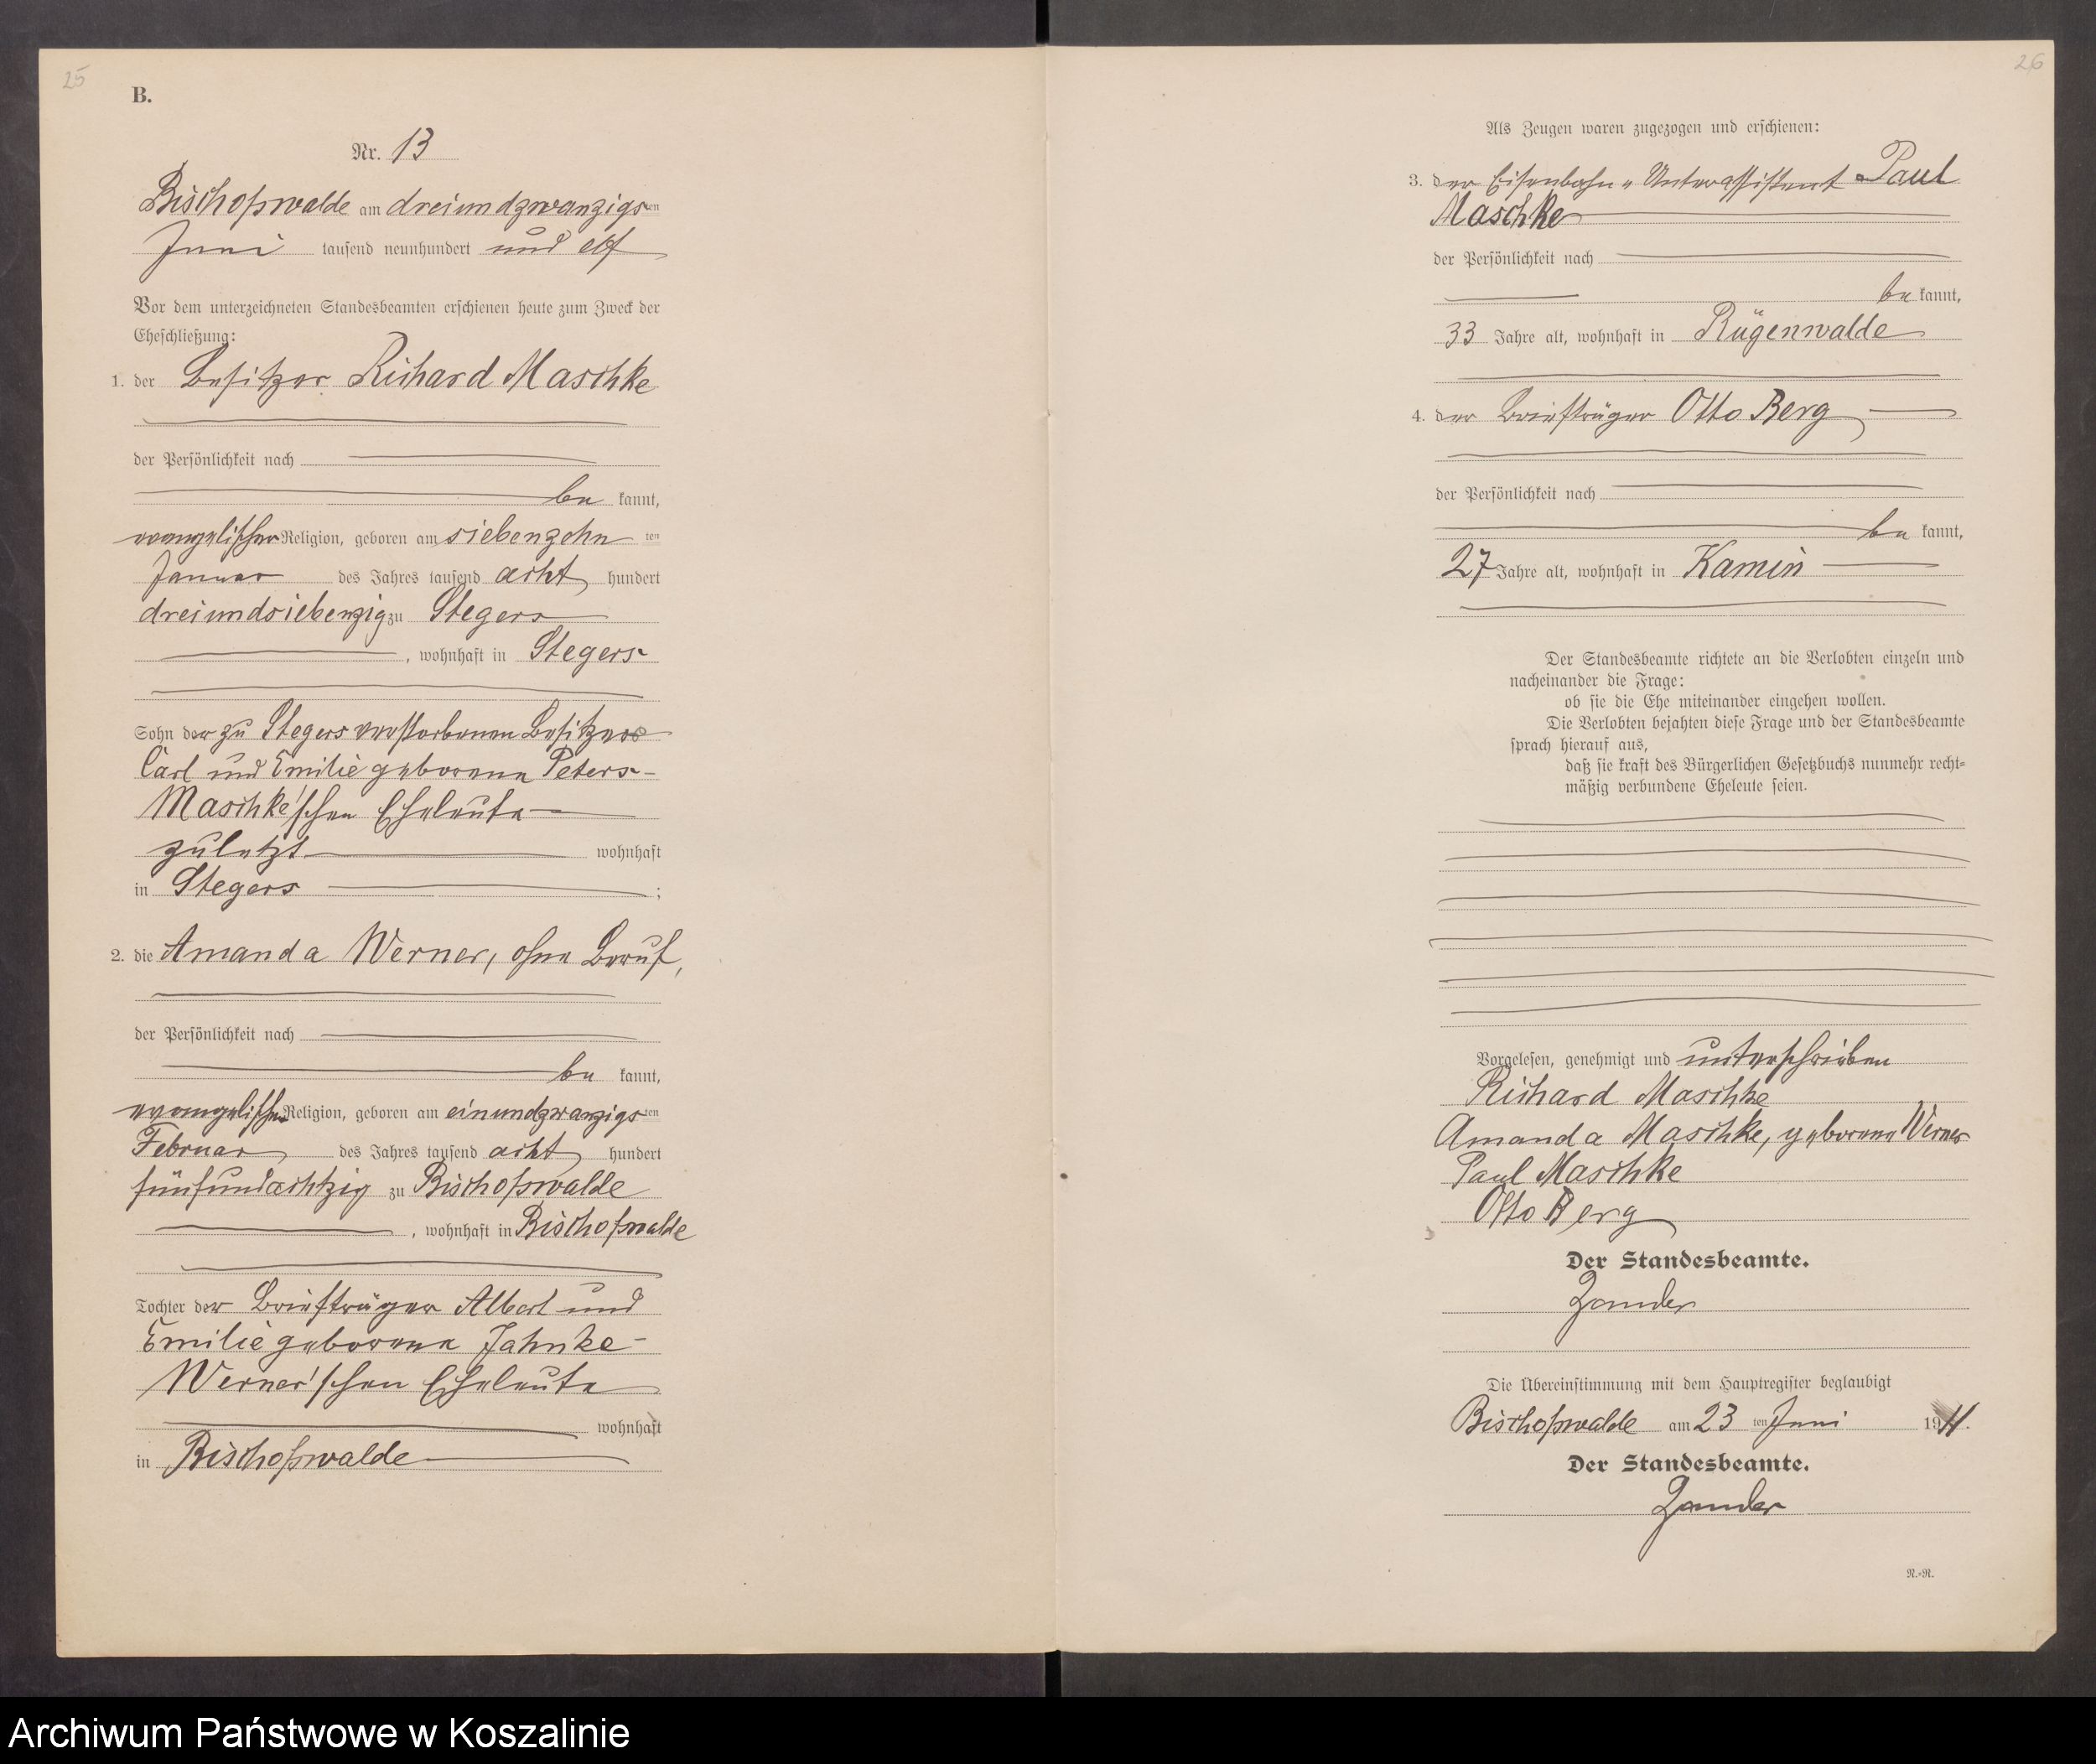 25
B.
Nr. 13
Bischofswalde am dreiundzwanzigsten
Juni tausend neunhundert und elf
Vor dem unterzeichneten Standesbeamten erschienen heute zum Zweck der
Eheschließung:
1. der Besitzer Richard Maschke
der Persönlichkeit nach
be kannt,
evangelischer Religion, geboren am siebenzehn ten
Januar des Jahres tausend acht hundert
dreiundsiebenzig zu Stegers
, wohnhaft in Stegers
Sohn der zu Stegers verstorbenen Besitzer
Carl und Emilie geborene Peters-
Maschke'schen Eheleute
zuletzt wohnhaft
in Stegers ;
2. die Amanda Werner, ohne Beruf,
der Persönlichkeit nach
be kannt,
evangelischer Religion, geboren am einundzwanzigsten
Februar des Jahres tausend acht hundert
fünfundachtzig zu Bischofswalde
, wohnhaft in Bischofswalde
Tochter der Briefträger Albert und
Emilie geborene Jahnke-
Werner'schen Eheleute
wohnhaft
in Bischofswalde
26
Als Zeugen waren zugezogen und erschienen:
3. der Eisenbahn-Unterassistent Paul
Maschke
der Persönlichkeit nach
be kannt,
33 Jahre alt, wohnhaft in Rügenwalde
4. der Briefträger Otto Berg
der Persönlichkeit nach
be kannt,
27 Jahre alt, wohnhaft in Kamin
Der Standesbeamte richtete an die Verlobten einzeln und
nacheinander die Frage:
ob sie die Ehe miteinander eingehen wollen.
Die Verlobten bejahten diese Frage und der Standesbeamte
sprach hierauf aus,
daß sie kraft des Bürgerlichen Gesetzbuchs nunmehr recht-
mäßig verbundene Eheleute seien.
Vorgelesen, genehmigt und unterschrieben
Richard Maschke
Amanda Maschke, geborene Werner
Paul Maschke
Otto Berg
Der Standesbeamte.
Zander
Die Übereinstimmung mit dem Hauptregister beglaubigt
Bischofswalde am 23 ten Juni 1911.
Der Standesbeamte.
Zander
N.-N.
Archiwum Państwowe w Koszalinie